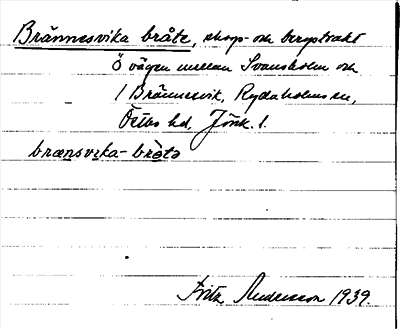 Brännesvika bråte, skogs- och bergstrakt
Ö vägen mellan Svansholm och
/ Brännesvik, Rydaholms sn,
Östbo hd, Jönk. l.
brænsveka- bråtə
Fritz Andersson 1939.